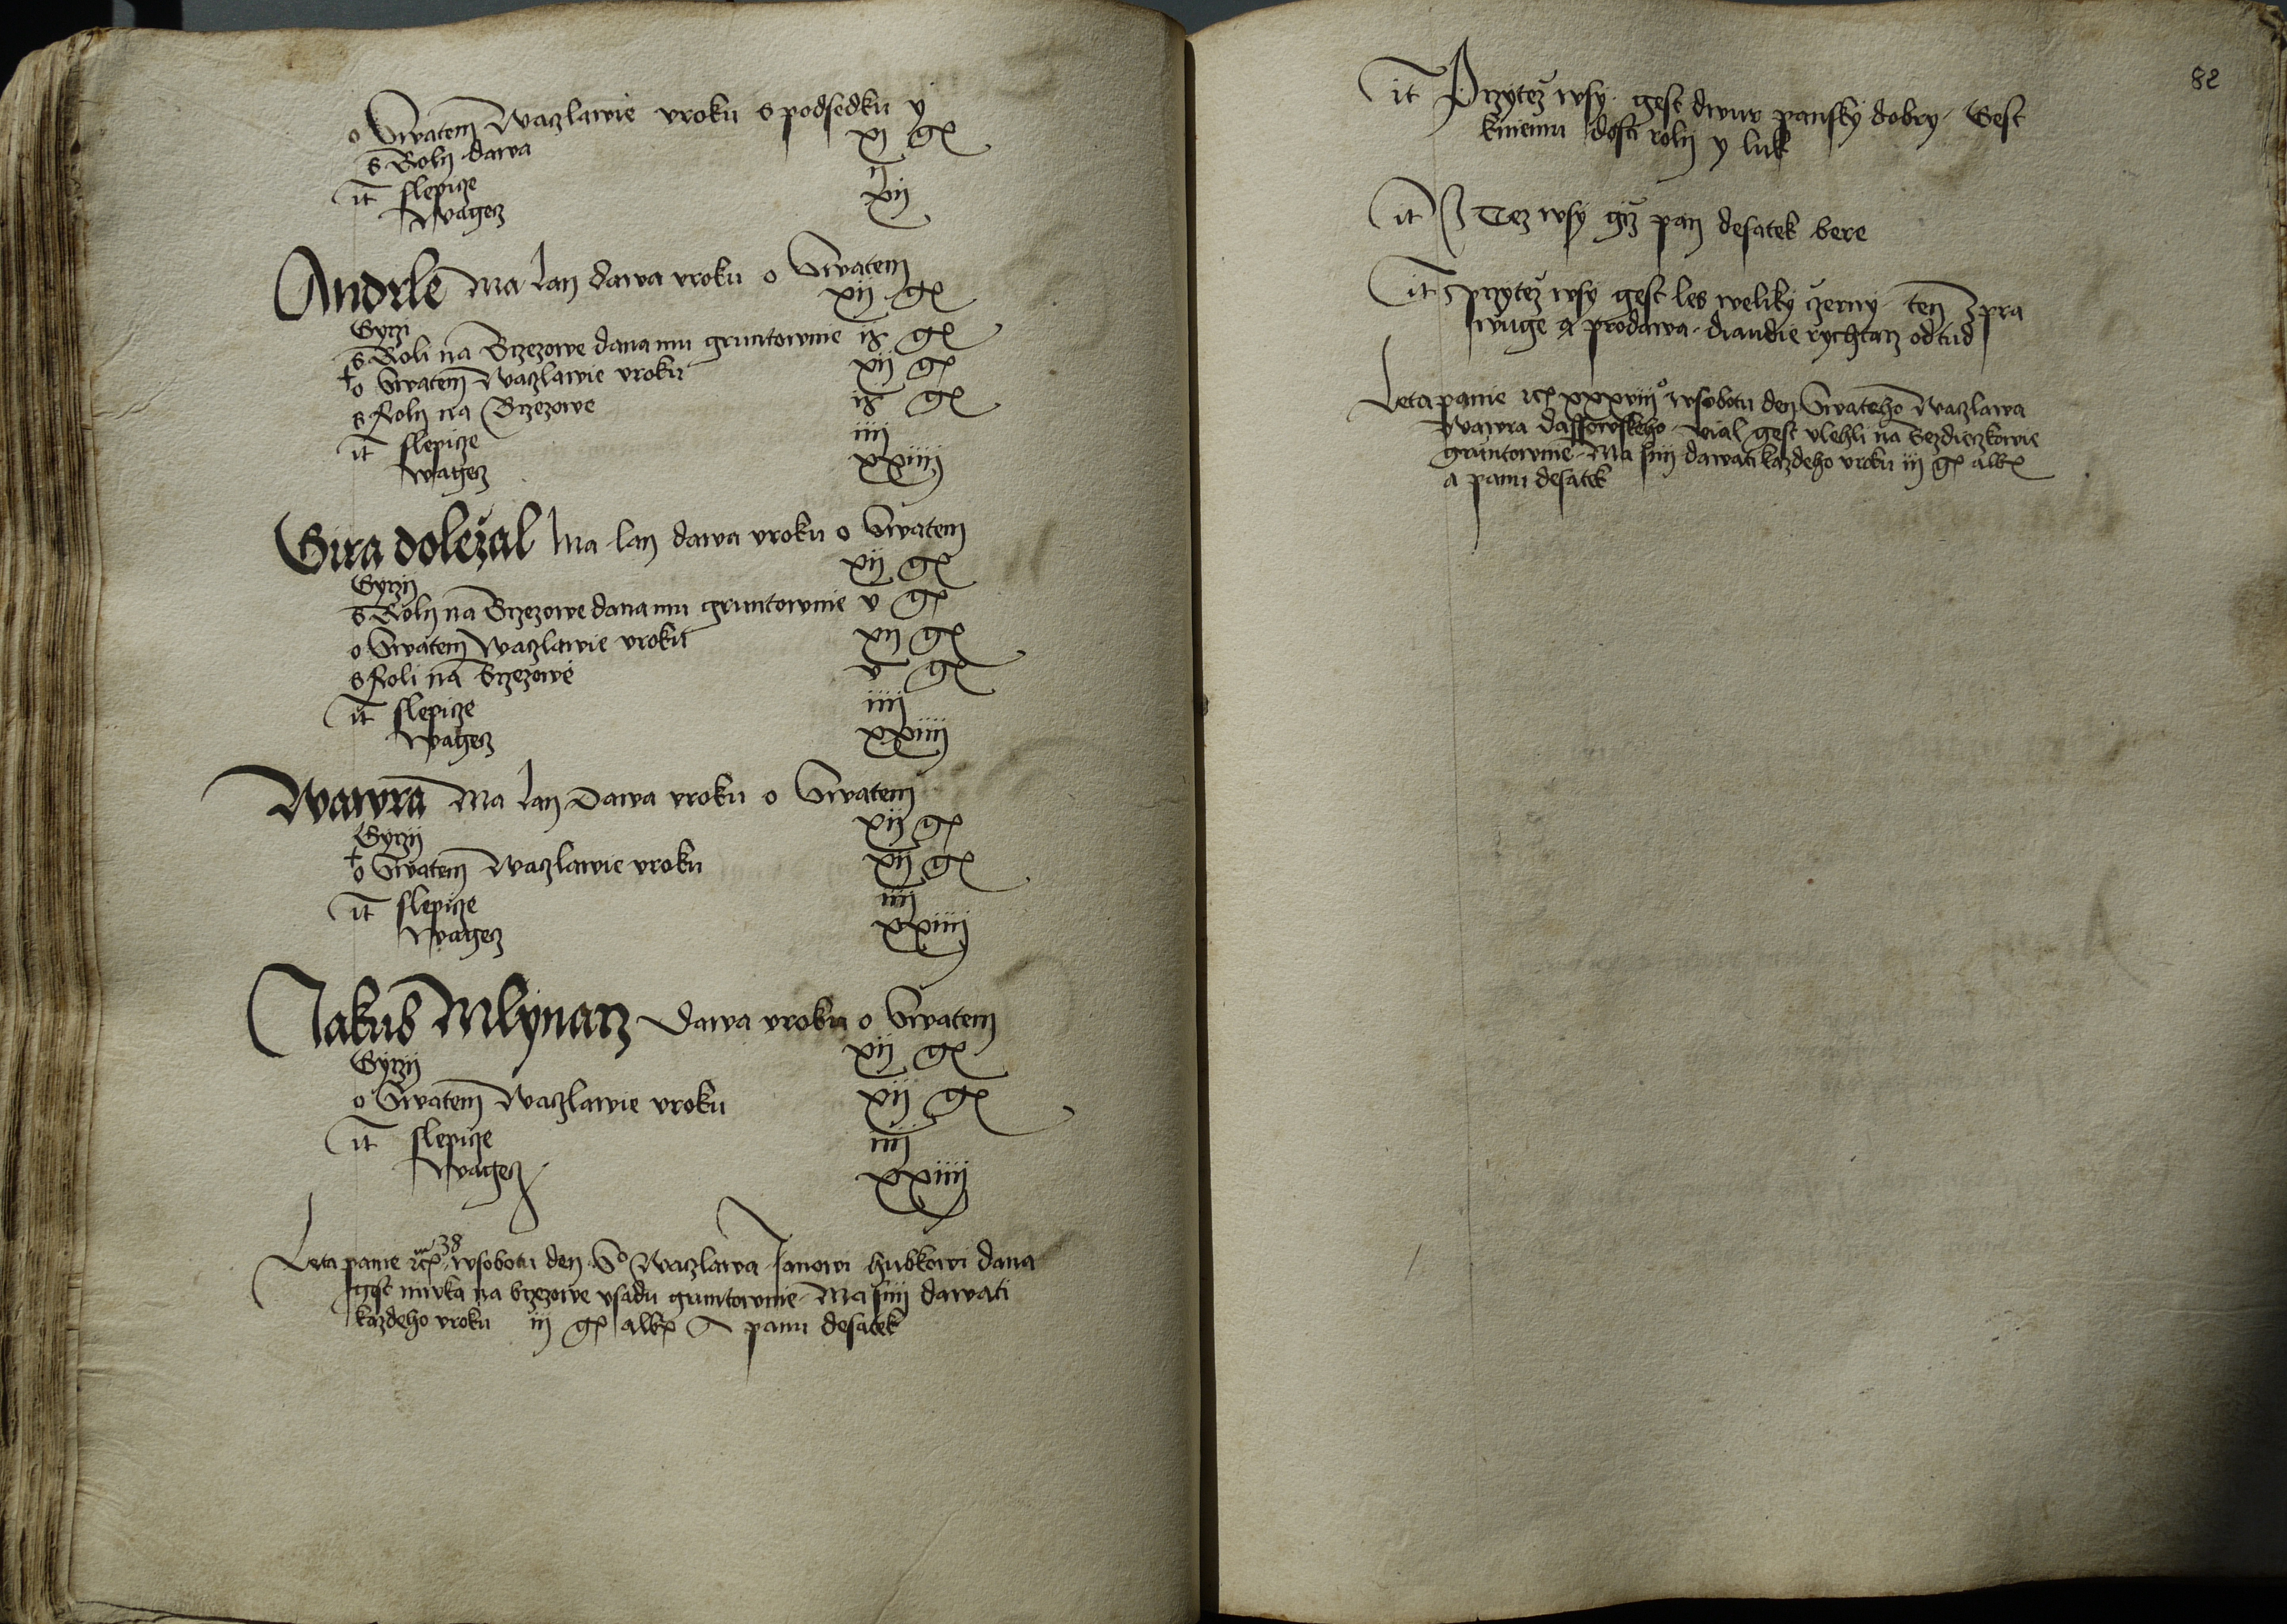 o Swatem Waczlawie vroku s podsedku y
s Roly dawa xi gr
it slepicze ij
Wagecz xij
Andrle Ma lan dawa vroku o Swatem
Gyrzi xij gr
s Roli na Brzezowe dana mu gruntownie ix gr
o Swatem Waczlawie vroku xij gr
s Roly na Brzezowe ix gr
it slepicze iiij
wagecz xxiiij
Gira dolezal Ma lan dawa vroku o Swatem
Gyrzij xij gr
s Roly na Brzezowe dana mu gruntownie v gr
o Swatem Waczlawie vroku xij gr
s Roli na Brzezowe v gr
it slepicze iiij
wagecz xxiiij
Wawra Ma lan Dawa vroku o Swatem
Gyrzij xij gr
o Swatem Waczlawie vroku xij gr
it slepicze iiij
wagecz xxiiij
Jakub Mlynarz Dawa vroku o Swatem
Gyrzij xij gr
o Swatem Waczlawie vroku xij gr
it slepicze iiij
Wagecz xxiiij
Leta panie 38 w sobotu den Sº Waczlawa Janowi hubkowi dana
gest niwka na brzezowe vsadu gruntownie Ma sni dawati
kazdeho vroku iij gr alb A panu desatek
82
it Przytez wsy gest dwur pansky dobry Gest
kniemu dosti rolij y luk
it Z Tez wsy giz pan desatek bere
it przytez wsy gest les weliky czerny ten zpra
wuge a prodawa diandie rychtarz odtud
Leta panie xxxviijº w sobotu den Swateho Waczlawa
Wawra dassowskeho vial gest vlehli na Bezdieczkowie
gruntownie Ma sni dawati kazdeho vroku iij gr alb
a panu desatek